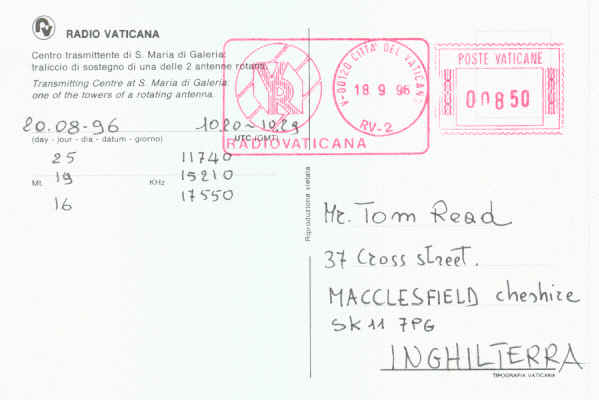 RADIO VATICANA
Centro trasmittente di S. Maria di Galeria:
traliccio di sostegno di una delle 2 antenne rotanti.
Transmitting Centre at S. Maria di Galeria:
one of the towers of a rotating antenna.
20.08-96 1020-1029
(day - jour - dia - datum - giorno) UTC (GMT)
25 11740
Mt. 19 KHz 15210
16 17550
RADIOVATICANA
V-00120 CITTA' DEL VATICANO
18 9 96
RV-2
POSTE VATICANE
00850
Riproduzione vietata
Mr. Tom Read
37 Cross street.
MACCLESFIELD cheshire
SK11 7PG
INGHILTERRA
TIPOGRAFIA VATICANA